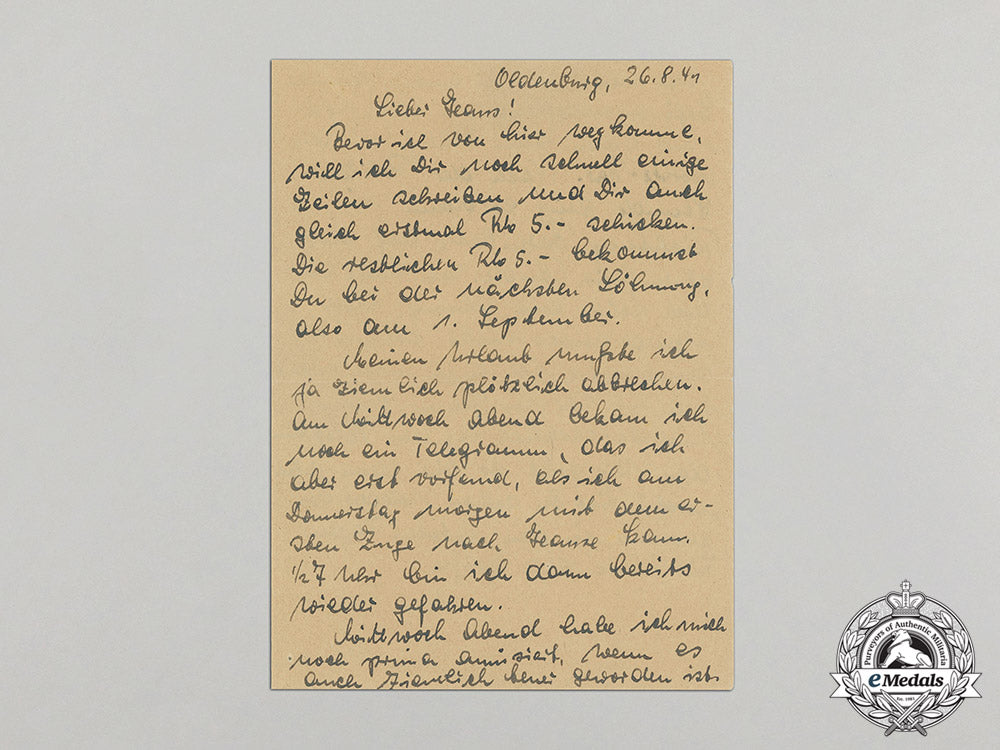 Oldenburg, 26.8.41
Lieber Hans!
Bevor ich von hier wegkomme,
will ich Dir noch schnell einige
Zeilen schreiben und Dir auch
gleich erstmal RM 5.- schicken.
Die restlichen RM 5.- bekommst
Du bei der nächsten Löhnung,
also am 1. September.
Meinen Urlaub mußte ich
ja ziemlich plötzlich abbrechen.
Am Mittwoch Abend bekam ich
noch ein Telegramm, das ich
aber erst vorfand, als ich am
Donnerstag morgen mit dem er-
sten Zuge nach Hause kam.
1/2 7 Uhr bin ich dann bereits
wieder gefahren.
Mittwoch Abend habe ich mich
noch prima amüsiert, wenn es
auch ziemlich teuer geworden ist.
Purveyors of Authentic Militaria
eMedals
Est. 1995